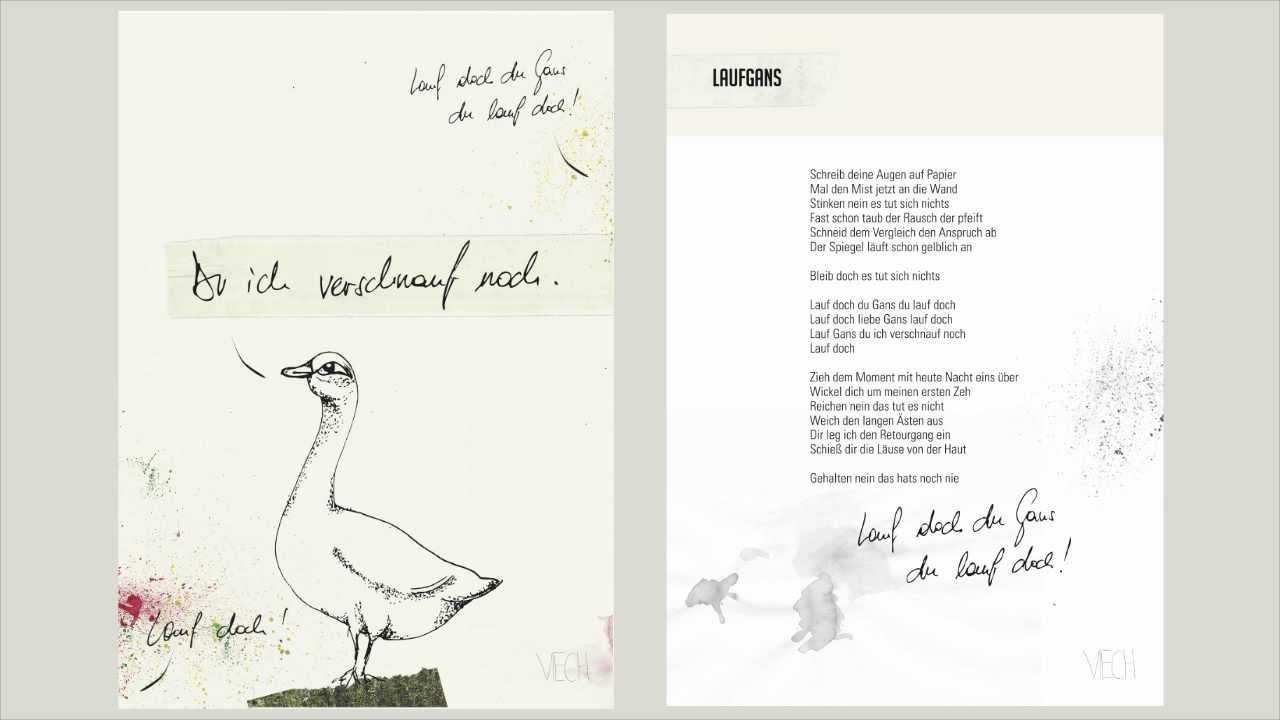 Lauf doch du Gans
du lauf doch!
Du ich verschnauf noch.
Lauf doch!
VIECH
LAUFGANS
Schreib deine Augen auf Papier
Mal den Mist jetzt an die Wand
Stinken nein es tut sich nichts
Fast schon taub der Rausch der pfeift
Schneid dem Vergleich den Anspruch ab
Der Spiegel läuft schon gelblich an
Bleib doch es tut sich nichts
Lauf doch du Gans du lauf doch
Lauf doch liebe Gans lauf doch
Lauf Gans du ich verschnauf noch
Lauf doch
Zieh dem Moment mit heute Nacht eins über
Wickel dich um meinen ersten Zeh
Reichen nein das tut es nicht
Weich den langen Ästen aus
Dir leg ich den Retourgang ein
Schieß dir die Läuse von der Haut
Gehalten nein das hats noch nie
Lauf doch du Gans
du lauf doch!
VIECH